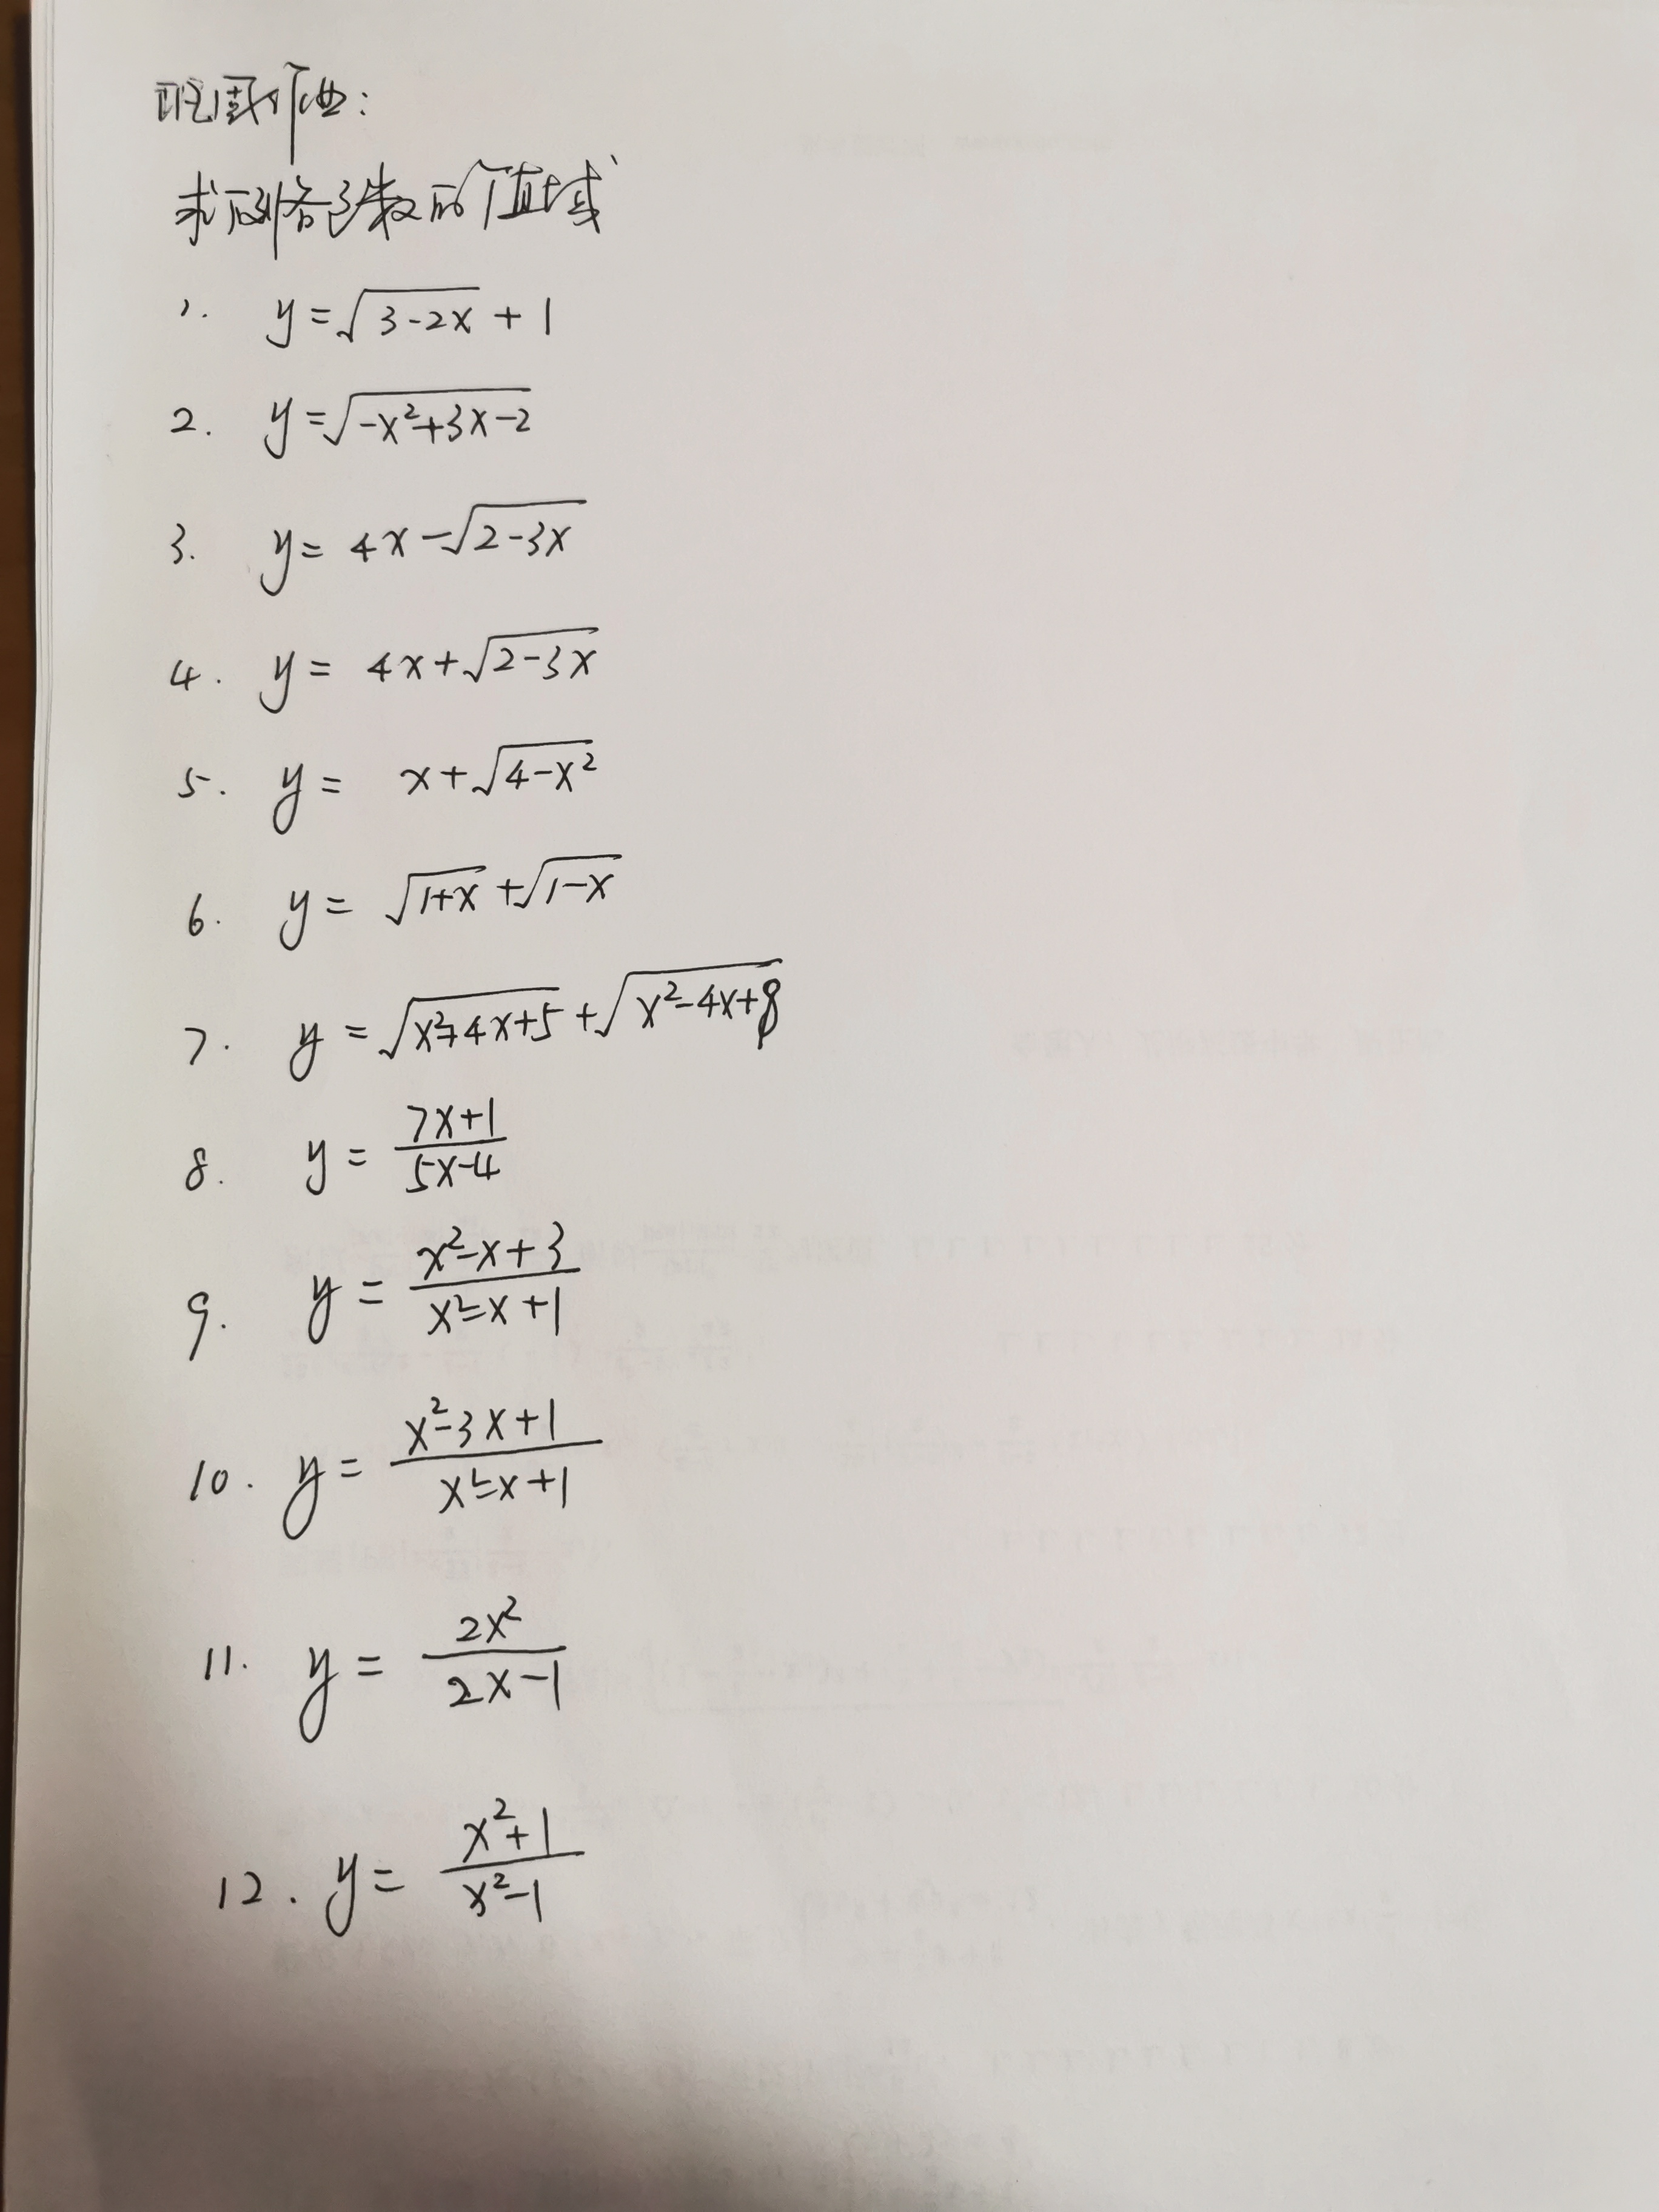 作业:
求下列各函数的值域
1. y=√(3-2x) + 1
2. y=√(-x²+3x-2)
3. y= 4x-√(2-3x)
4. y= 4x+√(2-3x)
5. y= x+√(4-x²)
6. y= √(1+x) +√(1-x)
7. y=√(x²+4x+5) +√(x²-4x+8)
8. y= (7x+1)/(5x-4)
9. y= (x²-x+3)/(x²-x+1)
10. y= (x²-3x+1)/(x²-x+1)
11. y= 2x²/(2x-1)
12. y= (x²+1)/(x²-1)